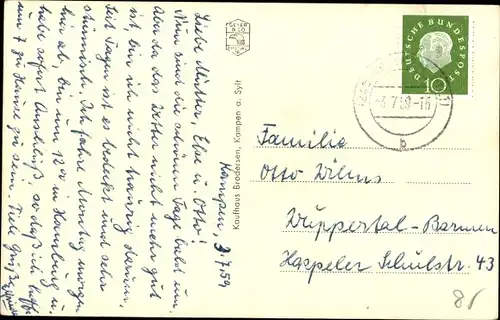 Kampen, 3.7.59
Liebe Mutter, Else u. Otto!
Nun sind die schönen Tage bald um.
Aber da das Wetter nicht mehr gut
ist, bin ich nicht traurig darum.
Seit Tagen ist es bedeckt und sehr
stürmisch. Ich fahre Montag morgen
hier ab, bin um 12 in Hamburg u.
habe sofort Anschluß, so daß ich hoffe
um 7 zu Hause zu sein. Viele Grüße
Kaufhaus Brodersen, Kampen a. Sylt
DEUTSCHE BUNDESPOST
10
-3.7.59-16
b
Familie
Otto Wilms
Wuppertal-Barmen
Haspeler Schulstr. 43